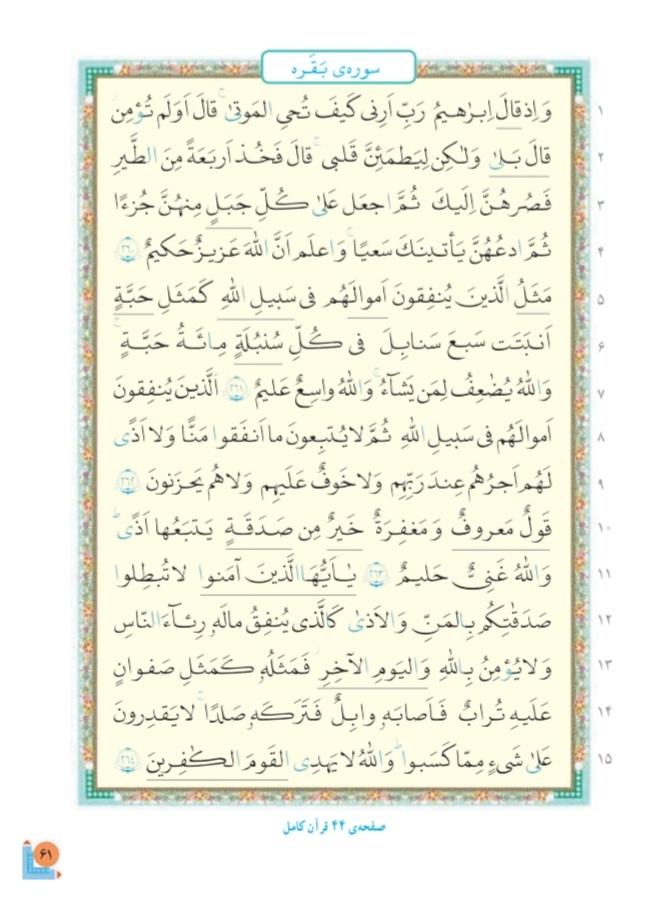 سوره‌ی بَقَره
۱ وَ اِذ قالَ اِبرٰهیمُ رَبِّ اَرِنی کَیفَ تُحیِ المَوتیٰ ۖ قالَ اَوَلَم تُؤمِن
۲ قالَ بَلیٰ وَلٰکِن لِیَطمَئِنَّ قَلبی ۖ قالَ فَخُذ اَربَعَةً مِنَ الطَّیرِ
۳ فَصُرهُنَّ اِلَیکَ ثُمَّ اجعَل عَلیٰ کُلِّ جَبَلٍ مِنهُنَّ جُزءًا
۴ ثُمَّ ادعُهُنَّ یَأتینَکَ سَعیًا ۚ وَ اعلَم اَنَّ اللهَ عَزیزٌ حَکیمٌ ﴿۲۶۰﴾
۵ مَثَلُ الَّذینَ یُنفِقونَ اَموالَهُم فی سَبیلِ اللهِ کَمَثَلِ حَبَّةٍ
۶ اَنبَتَت سَبعَ سَنابِلَ فی کُلِّ سُنبُلَةٍ مِائَةُ حَبَّةٍ ۗ
۷ وَ اللهُ یُضٰعِفُ لِمَن یَشآءُ ۚ وَ اللهُ واسِعٌ عَلیمٌ ﴿۲۶۱﴾ اَلَّذینَ یُنفِقونَ
۸ اَموالَهُم فی سَبیلِ اللهِ ثُمَّ لا یُتبِعونَ ما اَنفَقوا مَنًّا وَ لا اَذًی
۹ لَهُم اَجرُهُم عِندَ رَبِّهِم وَ لا خَوفٌ عَلَیهِم وَ لا هُم یَحزَنونَ ﴿۲۶۲﴾
۱۰ قَولٌ مَعروفٌ وَ مَغفِرَةٌ خَیرٌ مِن صَدَقَةٍ یَتبَعُها اَذًی ۗ
۱۱ وَ اللهُ غَنِیٌّ حَلیمٌ ﴿۲۶۳﴾ یٰاَیُّهَا الَّذینَ آمَنوا لا تُبطِلوا
۱۲ صَدَقٰتِکُم بِالمَنِّ وَ الاَذیٰ کَالَّذی یُنفِقُ مالَهٗ رِئآءَ النّاسِ
۱۳ وَ لا یُؤمِنُ بِاللهِ وَ الیَومِ الآخِرِ ۖ فَمَثَلُهٗ کَمَثَلِ صَفوانٍ
۱۴ عَلَیهِ تُرابٌ فَاَصابَهٗ وابِلٌ فَتَرَکَهٗ صَلدًا ۖ لا یَقدِرونَ
۱۵ عَلیٰ شَیءٍ مِمّا کَسَبوا ۗ وَ اللهُ لا یَهدِی القَومَ الکٰفِرینَ ﴿۲۶۴﴾
صفحه‌ی ۴۴ قرآن کامل
۶۱